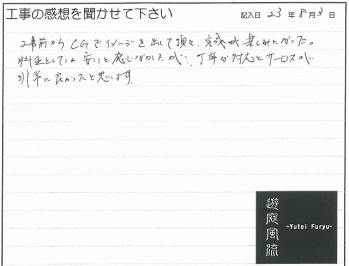 工事の感想を聞かせて下さい
記入日 23 年 8 月 3 日
工事前からCGでイメージを出して頂き、完成が楽しみだった。
料金としては安いと感じなかったが、丁寧な対応とサービスが
非常に良かったと思います。
遊庭風流
-Yutei Furyu-